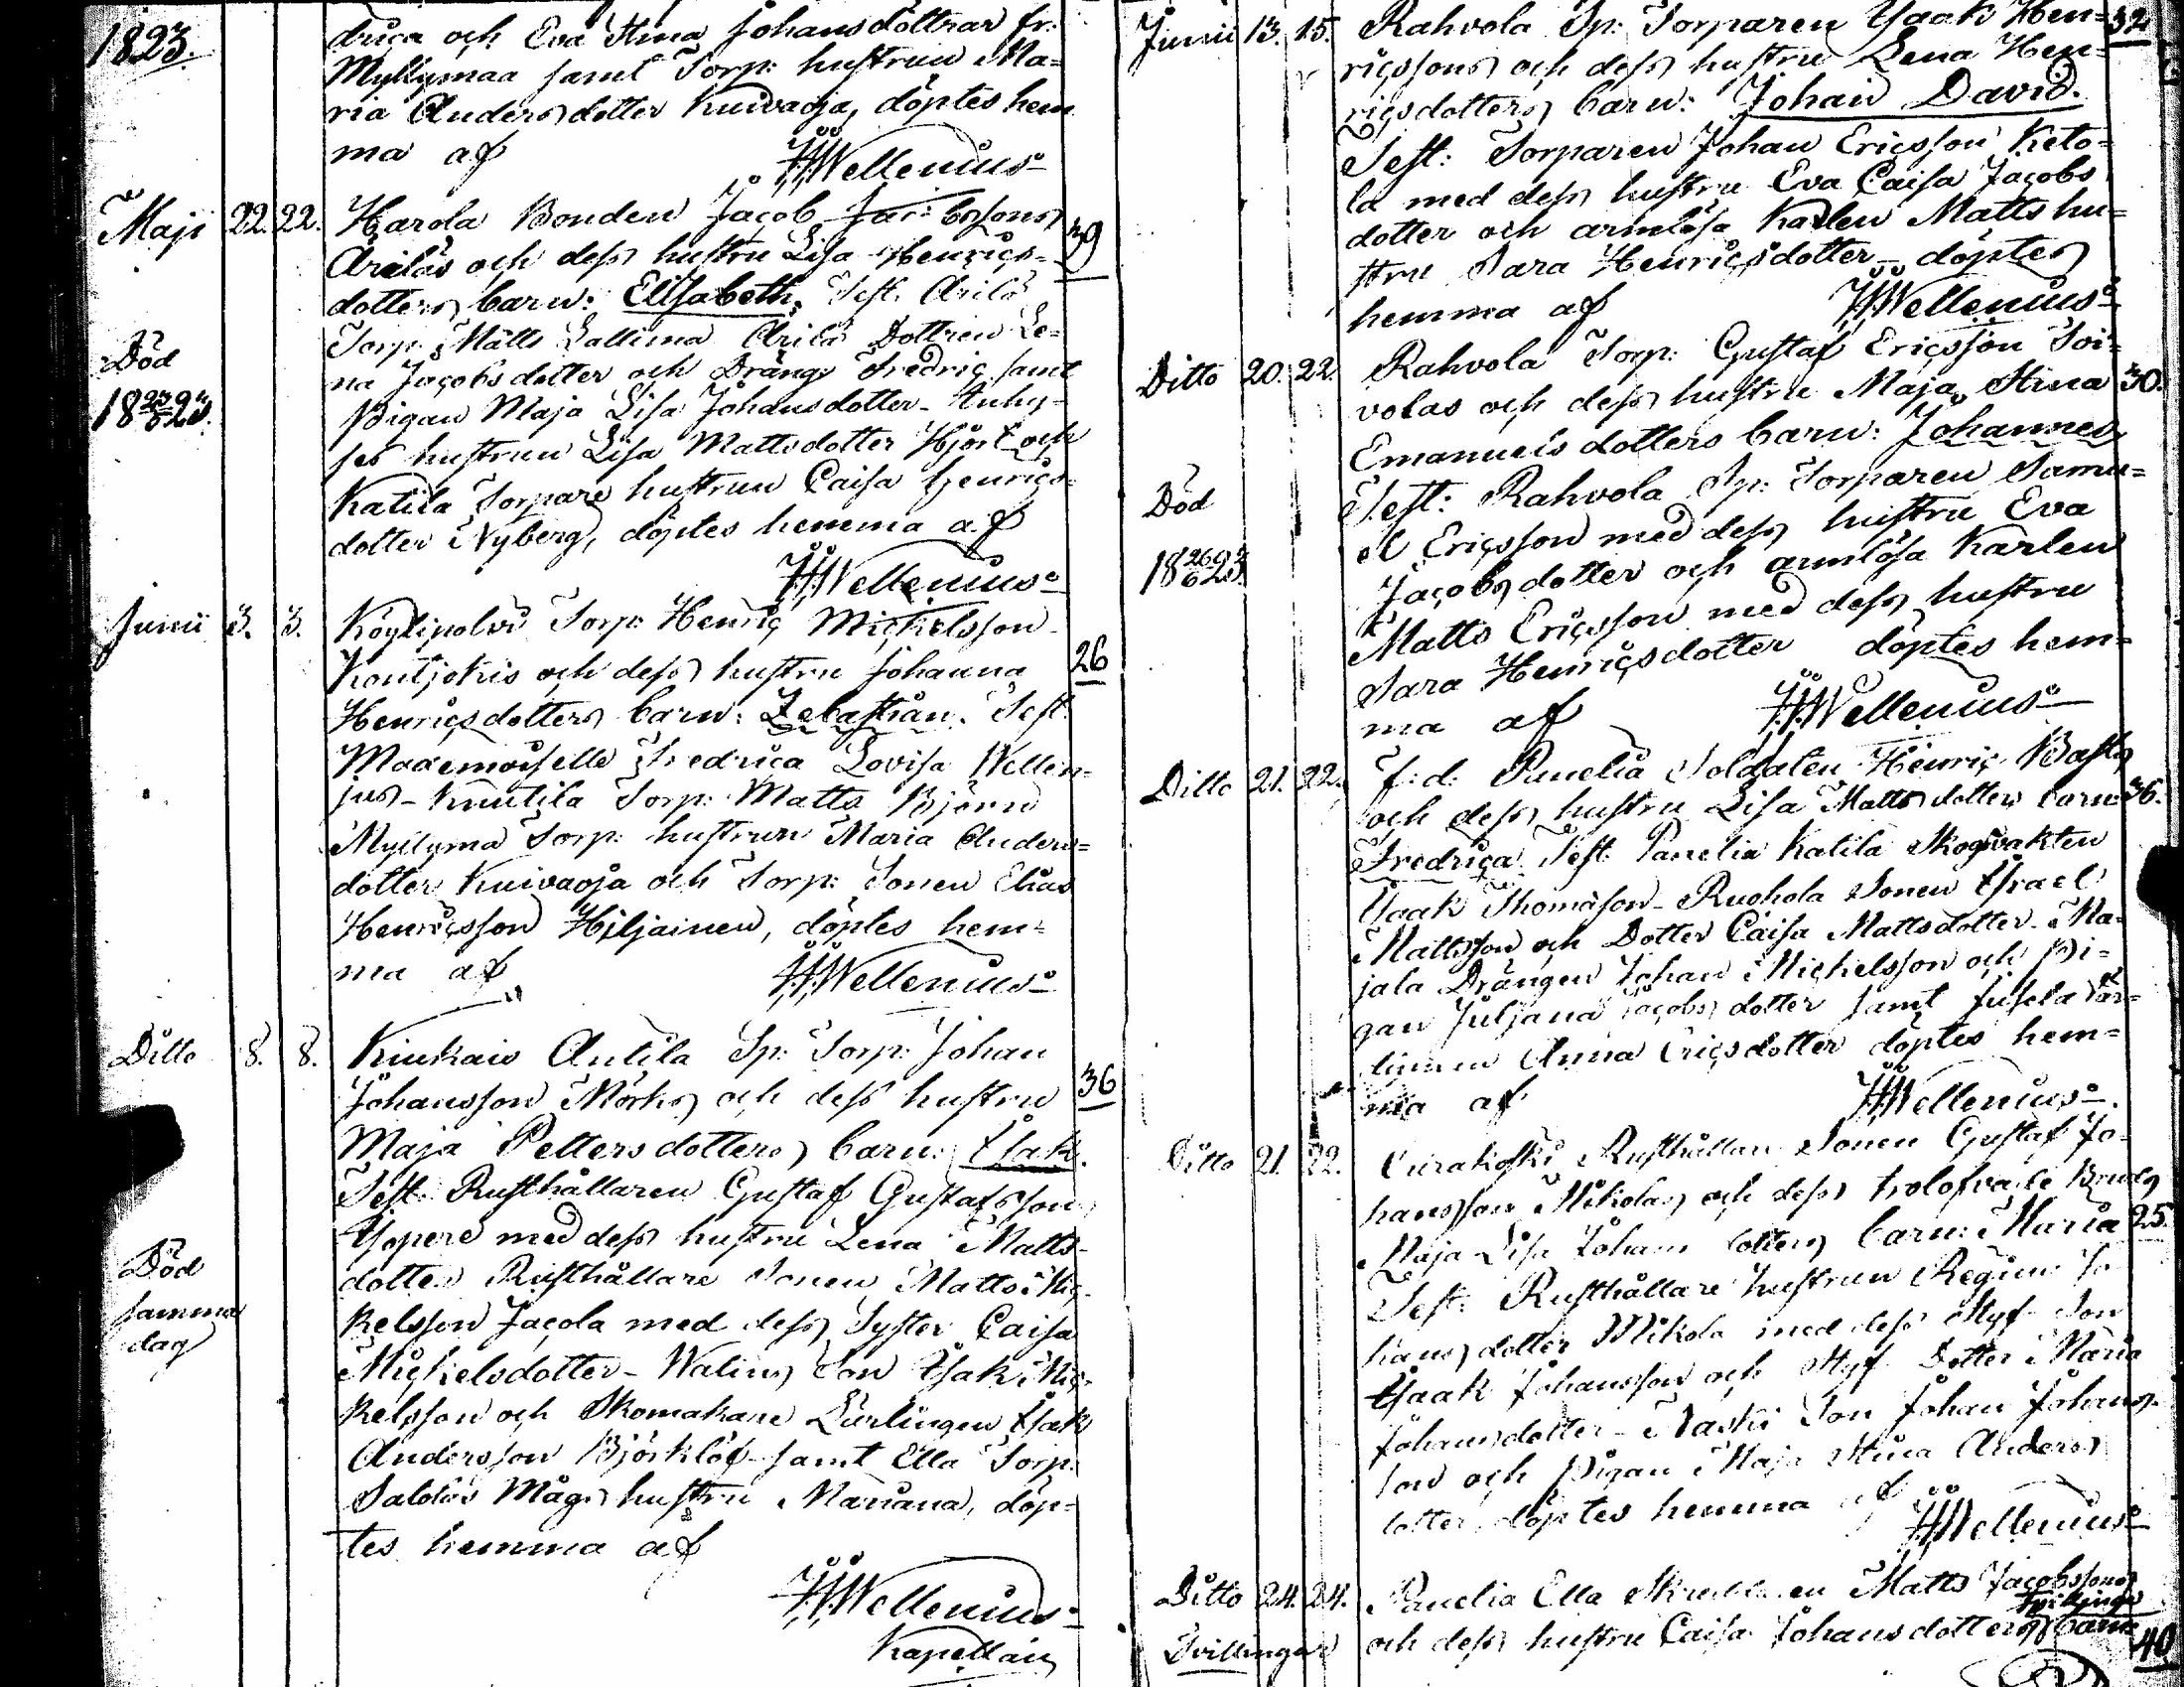 1823.
driça och Eva Stina Johansdottrar fr:
Myllymaa samt Torp: hustrun Ma=
ria Andersdotter Kuivaoja, döptes hem
ma af
Wellenius
Maji 22. 22. Harola Bonden Jacob Jac: bssons 39
Arilas och dess hustru Lisa Henriçs=
dotters barn: Elisabeth, Test. Arila
Torp. Matts Lallima Arila Dottren Le=
na Jaçobsdotter och Dräng Fredriç samt
Pigan Maja Lisa Johansdotter
hustrun Lisa Mattsdotter Hjort och
Katila Torpare hustrun Caisa Henriçs=
dotter Nyberg, döptes hemma af
Wellenius
Död
18 23/6 23.
Junii 3. 3. Köylipolvi Torp: Henriç Miçkelsson 26
Kontjokis och dess hustru Johanna
Henriçsdotters barn: Zebastian. Test.
Mademoiselle Fredrica Lovisa Wellen=
jus - Knutila Torp: Matts Björn
Myllyma Torp: hustrun Maria Anders=
dotter Kuivaoja och Torp: Sonen Elias
Henriçsson Hiljainen, döptes hem=
ma af
Wellenius
Ditto 8. 8. Kiukais Antila Sp: Torp: Johan 36
Johansson Mörks och dess hustru
Maja Pettersdotters barn: Isak.
Test. Rusthållaren Gustaf Gustafsson
Yopere med dess hustru Lena Matts=
dotter Rusthållare Sonen Matts Miç=
kelsson Jaçola med dess Syster Caisa
Miçkelsdotter - Walins Son Isak Miç=
kelsson och Skomakare Lärlingen Isak
Andersson Björklöf samt Ella Torp.
Måg hustru Mariana, döp=
tes hemma af
Wellenius
Kapellan
Död
samma
dag
Junii 13. 15. Rahvola Sp: Torparen Ysaak Hen= 32
riçssons och dess hustru Lena Hen=
riçsdotters barn: Johan David.
Test: Torparen Johan Ericsson Keto=
la med dess hustru Eva Caisa Jaçobs
dotter och armlösa Karlen Matts hu=
stru Sara Henriçsdotter - döptes
hemma af
Wellenius
Ditto 20. 22. Rahvola Torp: Gustaf Ericsson Toi= 30.
volas och dess hustru Maja Stina
Emanuelsdotters barn: Johannes
Test: Rahvola Sp: Torparen Samu=
el Eriçsson med dess hustru Eva
Jaçobsdotter och armlösa Karlen
Matts Eriçsson med dess hustru
Sara Henriçsdotter döptes hem=
ma af
Wellenius
Död
18 26/6 23.
Ditto 21. 22. F: d: Panelia Soldaten Henriç Basts 36.
och dess hustru Lisa Mattsdotters barn:
Fredriça Test: Panelia Katila Skogvakten
Ysaak Thomasson - Ruohola Sonen Israel
Mattsson och Dotter Caisa Mattsdotter - Ma=
jala Drängen Johan Miçkelsson och Pi=
gan Juljana Jaçobsdotter samt
Anna Eriçsdotter döptes hem=
ma af
Wellenius
Ditto 21. 22. Eurakoski Rusthållare Sonen Gustaf Jo=
hansson Mikolas och dess trolofvade Bruds
Maja Lisa Johansdotters barn: Maria 25.
Test: Rusthållare hustrun Regina Jo
hansdotter Mikola med dess Styf Son
Ysaak Johansson och Styf Dotter Maria
Johansdotter - Naski Son Johan Johans
son och Pigan Maja Stina Anders
dotter, döptes hemma af
Wellenius
Ditto 24. 24. Panelia Ella Matts Jacobssons
Tvillingar och dess hustru Caisa Johansdotters Tvillinge barn 40